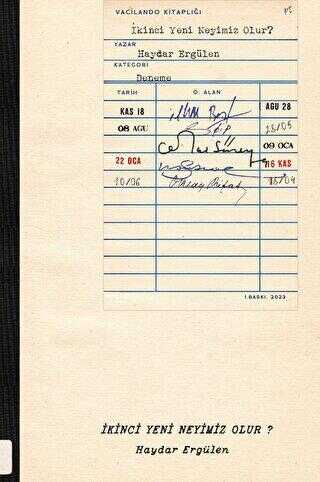 VACILANDO KİTAPLIĞI
İkinci Yeni Neyimiz Olur?
YAZAR
Haydar Ergülen
KATEGORİ
Deneme
TARİH
Ö. ALAN
KAS 18
İlhan Berk
1 AGU 28
08 AGU
28/05
Cemal Süreya
09 OCA
22 OCA
16 KAS
10/06
Oktay Rifat
18/04
1.BASKI. 2023
İKİNCİ YENİ NEYİMİZ OLUR ?
Haydar Ergülen